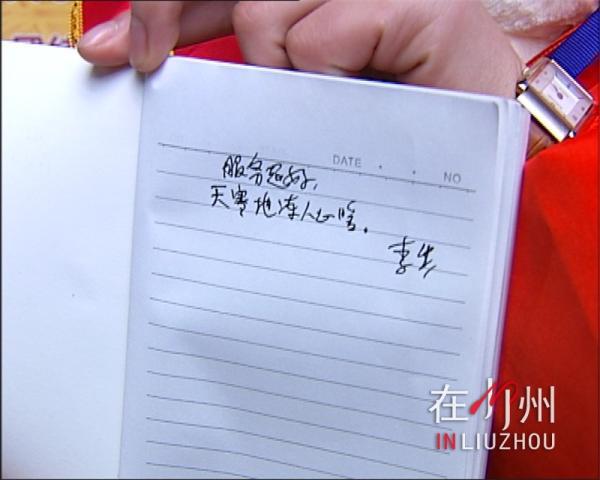 DATE . .
NO
服务超好,
天寒地冻人心暖。
李
在柳州
INLIUZHOU